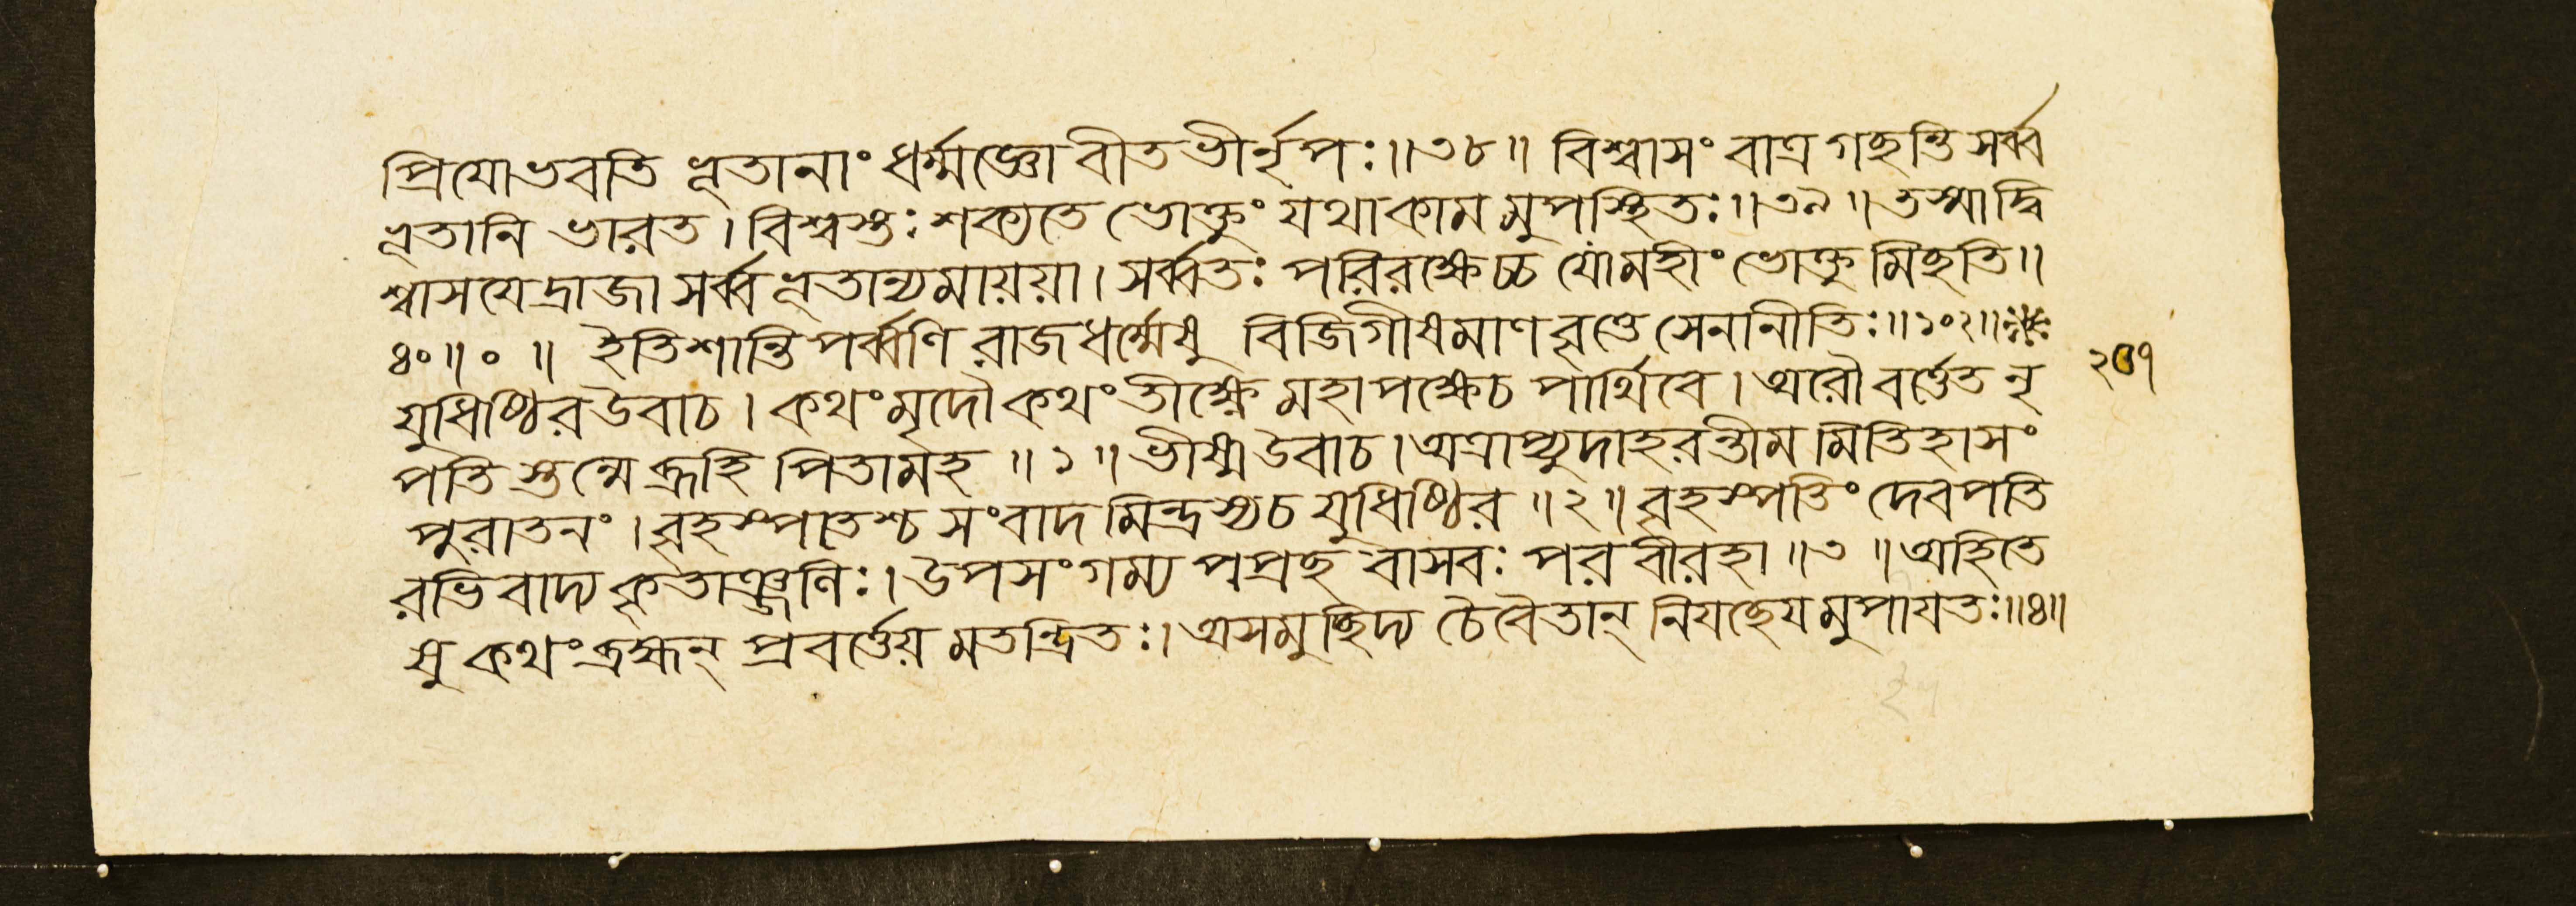 প্রিযোভবতি ভূতানাং ধর্ম্মজ্ঞো বীতভীর্নৃপঃ॥৩৮॥ বিশ্বাসং বাত্র গছন্তি সর্ব্ব
ভূতানি ভারত। বিশ্বস্তঃ শক্যতে ভোক্তুং যথাকামমুপস্থিতঃ॥৩৯॥ তস্মাদ্বি
শ্বাসযেদ্রাজা সর্ব্বভূতান্যমায়য়া। সর্ব্বতঃ পরিরক্ষেচ্চ যোমহীং ভোক্তুমিছতি॥
৪০॥০॥ ইতিশান্তিপর্ব্বণি রাজধর্ম্মেষু বিজিগীষমাণবৃত্তে সেনানীতিঃ॥১০২॥
যুধিষ্ঠিরউবাচ। কথংমৃদৌকথংতীক্ষ্ণে মহাপক্ষেচ পার্থিবে। অরৌবর্ত্তেত নৃ
পতিস্তন্মেব্রূহি পিতামহ॥১॥ ভীষ্মউবাচ। অত্রাপ্যুদাহরন্তীমমিতিহাসং
পুরাতনং। বৃহস্পতেশ্চ সংবাদমিন্দ্রস্যচ যুধিষ্ঠির॥২॥ বৃহস্পতিং দেবপতি
রভিবাদ্য কৃতাঞ্জলিঃ। উপসংগম্য পপ্রছ বাসবঃ পরবীরহা॥৩॥ অহিতে
ষু কথংব্রহ্মন্ প্রবর্ত্তেয়মতন্দ্রিতঃ। অসমুছিদ্য চৈবৈতান্ নিযছেযমুপাযতঃ॥৪॥